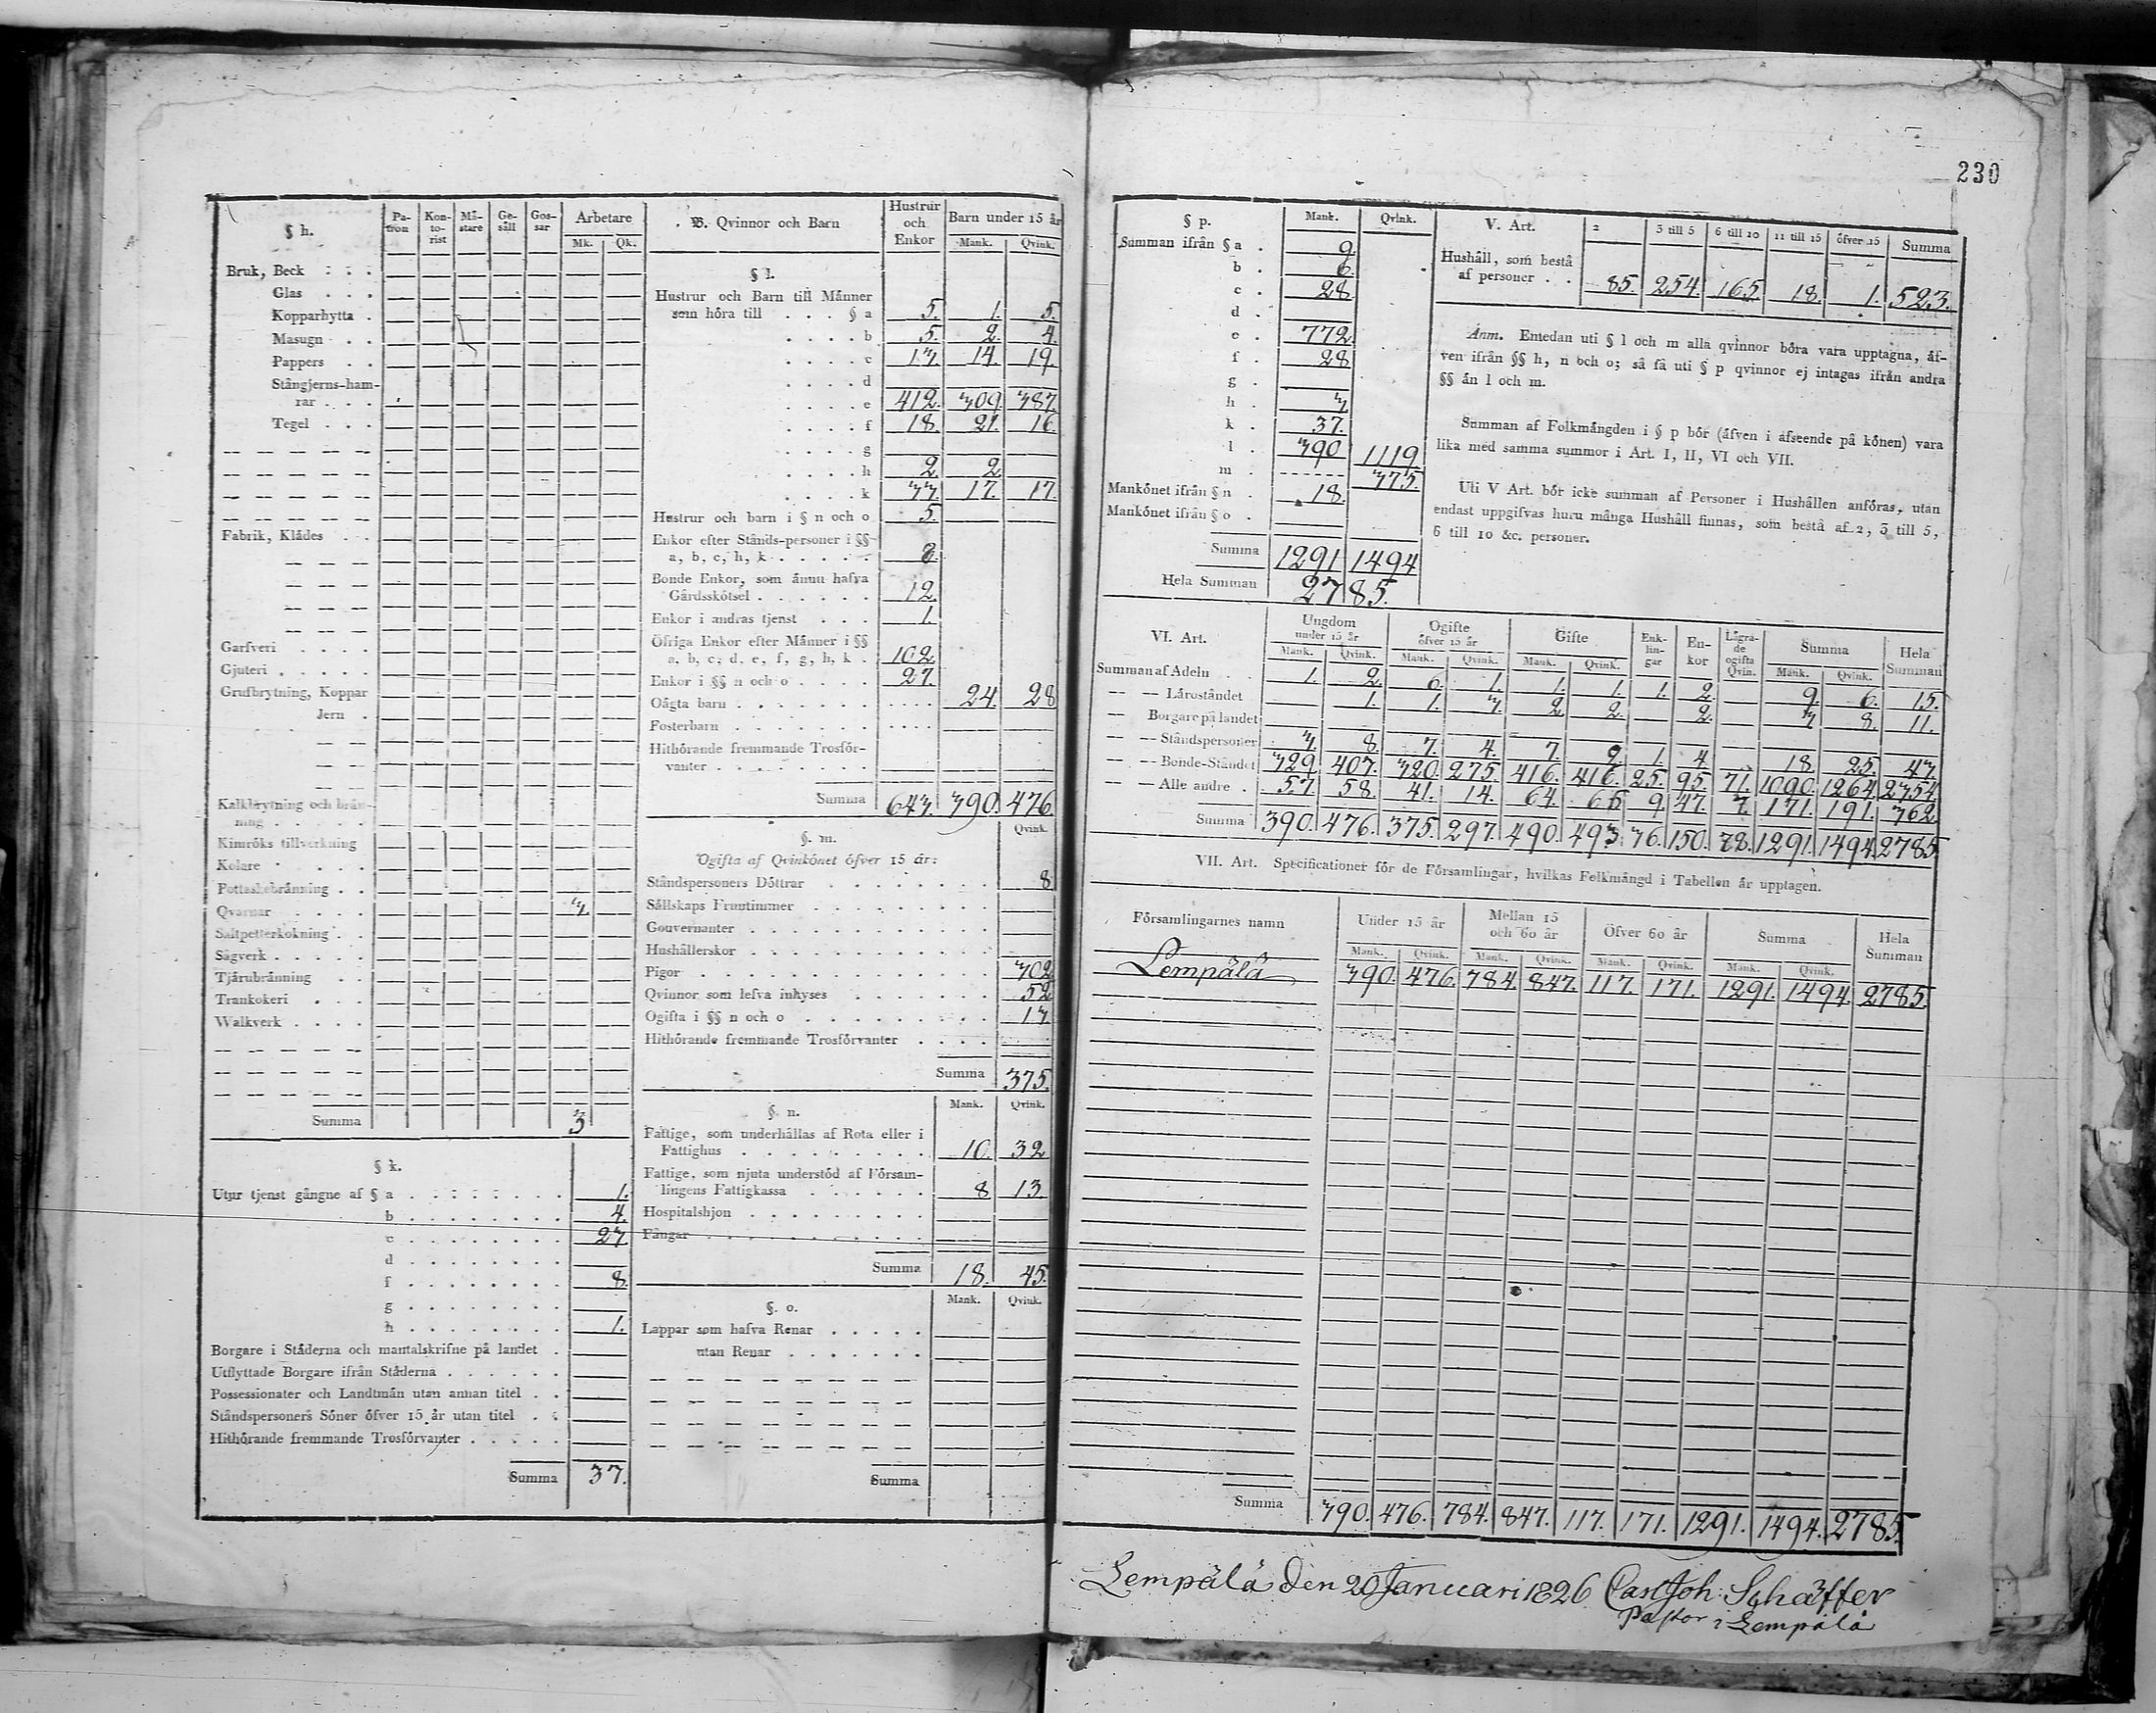 230
§ h.
Pa-tron Kon-to-rist Mä-stare Ge-säll Gos-sar Arbetare
Mk. Qk.
Bruk, Beck
Glas
Kopparhytta
Masugn
Pappers
Stångjerns-ham-
rar
Tegel
Fabrik, Klädes
Garfveri
Gjuteri
Grufbrytning, Koppar
Jern
Kalkbrytning och brän-
ning
Kimröks tillverkning
Kolare
Pottaskebränning
Qvarnar 3.
Saltpetterkokning
Sågverk
Tjärubränning
Trankokeri
Walkverk
Summa 3
§ k.
Utur tjenst gångne af § a 1.
b 4.
c 23.
d
f 8.
g
h 1.
Borgare i Städerna och mantalskrifne på landet
Utflyttade Borgare ifrån Städerna
Possessionater och Landtmän utan annan titel
Ståndspersoners Söner öfver 15 år utan titel
Hithörande fremmande Trosförvanter
Summa 37.
B. Qvinnor och Barn Hustrur och Enkor Barn under 15 år
Mank. Qvink.
§ l.
Hustrur och Barn till Männer
som höra till § a 5. 1. 5.
b 5. 2. 4.
c 13. 14. 19.
d
e 412. 309. 387.
f 18. 21. 16.
g
h 2. 2.
k 33. 17. 17.
Hustrur och barn i § n och o 5.
Enkor efter Stånds-personer i §§
a, b, c, h, k 8.
Bonde Enkor, som ännu hafva
Gårdsskötsel 12.
Enkor i andras tjenst 1.
Öfriga Enkor efter Männer i §§
a, b, c, d, e, f, g, h, k 102.
Enkor i §§ n och o 27.
Oägta barn 24. 28
Fosterbarn
Hithörande fremmande Trosför-
vanter
Summa 643. 390. 476.
§. m. Qvink.
Ogifta af Qvinkönet öfver 15 år:
Ståndspersoners Döttrar 8
Sällskaps Fruntimmer
Gouvernanter
Hushållerskor
Pigor 302
Qvinnor som lefva inhyses 52
Ogifta i §§ n och o 13.
Hithörande fremmande Trosförvanter
Summa 375.
§. n. Mank. Qvink.
Fattige, som underhållas af Rota eller i
Fattighus 10. 32
Fattige, som njuta understöd af Försam-
lingens Fattigkassa 8 13.
Hospitalshjon
Fångar
Summa 18. 45.
§. o. Mank. Qvink.
Lappar som hafva Renar
utan Renar
Summa
§ p. Mank. Qvink.
Summan ifrån § a 9.
b 6.
c 28.
d
e 772.
f 28
g
h 3
k 37.
l 390 1119
m 375.
Mankönet ifrån § n 18.
Mankönet ifrån § o
Summa 1291 1494
Hela Summan 2785.
V. Art. 2 3 till 5 6 till 10 11 till 15 öfver 15 Summa
Hushåll, som bestå
af personer 85. 254. 165. 18. 1. 523.
Anm. Emedan uti § l och m alla qvinnor böra vara upptagna, äf-
ven ifrån §§ h, n och o; så få uti § p qvinnor ej intagas ifrån andra
§§ än l och m.
Summan af Folkmängden i § p bör (äfven i afseende på könen) vara
lika med samma summor i Art. I, II, VI och VII.
Uti V Art. bör icke summan af Personer i Hushållen anföras, utan
endast uppgifvas huru många Hushåll finnas, som bestå af 2, 3 till 5,
6 till 10 &c. personer.
VI. Art. Ungdom under 15 år Ogifte öfver 15 år Gifte Enk-lin-gar En-kor Lägra-de ogifta Qvin. Summa Hela Summan
Mank. Qvink. Mank. Qvink. Mank. Qvink. Mank. Qvink.
Summan af Adeln 1. 2. 6. 1. 1. 1. 1. 2. 9. 6. 15.
Läroståndet 1. 1. 3. 2. 2. 2. 3. 8. 11.
Borgare på landet
Ståndspersoner 3. 8. 7. 4. 7. 9. 1. 4 18. 25. 43.
Bonde-Ståndet 329. 407. 320. 275. 416. 416. 25. 95. 71. 1090. 1264. 2354.
Alle andre 57. 58. 41. 14. 64. 65 9. 47. 7. 171. 191. 362.
Summa 390. 476. 375. 297. 490. 493. 36. 150. 78. 1291. 1494. 2785.
VII. Art. Specificationer för de Församlingar, hvilkas Folkmängd i Tabellen är upptagen.
Församlingarnes namn Under 15 år Mellan 15 och 60 år Öfver 60 år Summa Hela Summan
Mank. Qvink. Mank. Qvink. Mank. Qvink. Mank. Qvink.
Lempälä 390. 476. 784. 847. 117. 171. 1291. 1494. 2785.
Summa 390. 476. 784. 847. 117. 171. 1291. 1494. 2785.
Lempälä den 20 Januari 1826 Cast Joh: Schäffer
Pastor i Lempälä